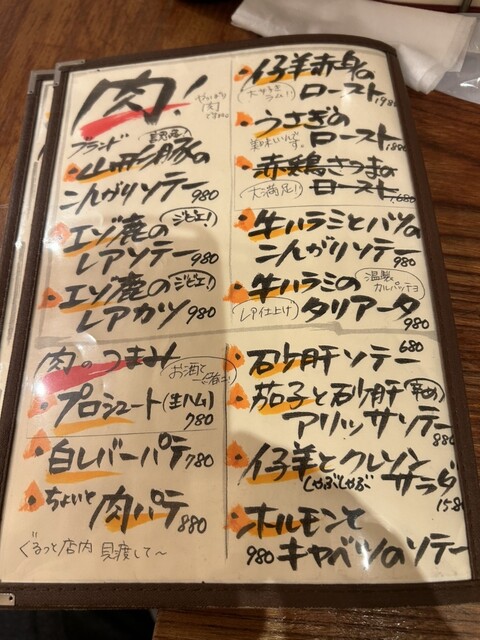 肉!
やっぱり
肉
ですね。
ブランド
山形豚の
こんがりソテー 980
エゾ鹿の ジビエ!
レアソテー 980
エゾ鹿の ジビエ!
レアカツ 980
肉のつまみ
お酒で
プロシュート(生ハム)
780
白レバーパテ 780
ちょいと肉パテ 880
ぐるっと店内 見渡して〜
仔羊赤身の
ロースト 1980
うさぎの
美味しいんです。
ロースト
赤鶏さつまの
大満足!
ロースト 1,680
牛ハラミとハツの
こんがりソテー 980
牛ハラミの 温製カルパッチョ
レア仕上げ タリアータ
980
石砂肝ソテー 680
茄子と砂肝 辛め
アリッサソテー
880
仔羊とクレソン
しゃぶしゃぶ サラダ
1580
ホルモンと
980 キャベツのソテー